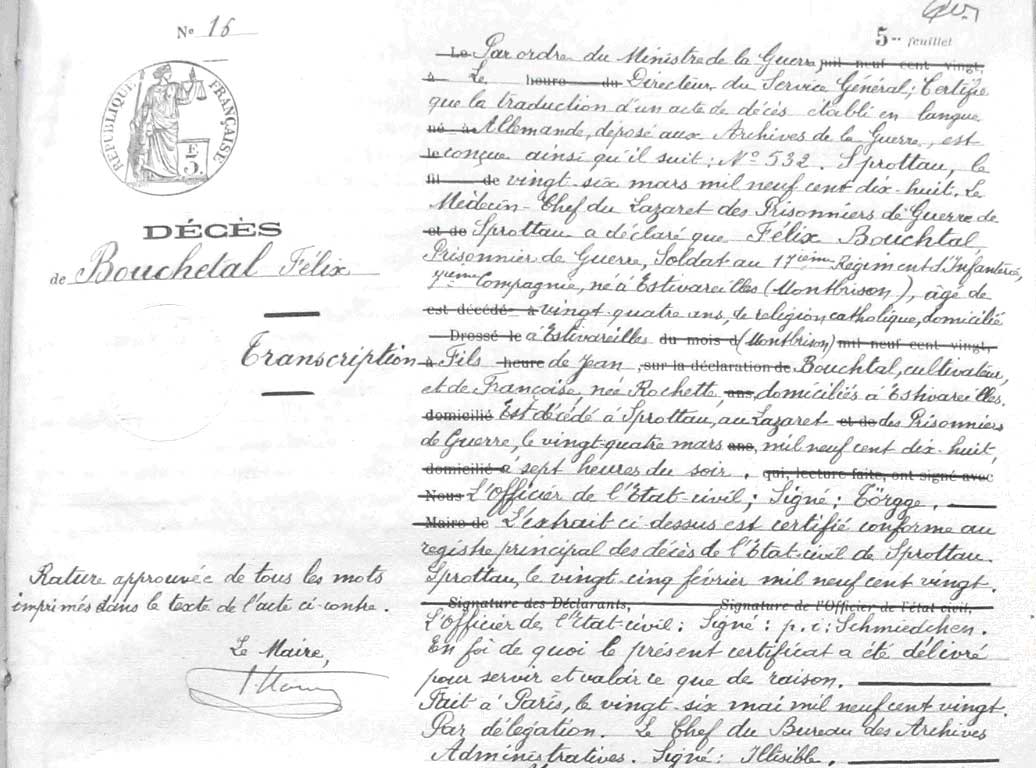 N° 16
5me feuillet
RÉPUBLIQUE FRANÇAISE
E
3.
DÉCÈS
de Bouchetal Félix
Transcription
Rature approuvée de tous les mots
imprimés dans le texte de l'acte ci-contre.
Le Maire,
Le Par ordre du Ministre de la Guerre, mil neuf cent vingt,
à Le heure du Directeur du Service Général; Certifie
que la traduction d'un acte de décès établi en langue
né à Allemande, déposé aux Archives de la Guerre, est
le conçue ainsi qu'il suit: N° 532. Sprottau, le
fil de vingt-six mars mil neuf cent dix-huit. Le
Médecin-Chef du Lazaret des Prisonniers de Guerre de
et de Sprottau a déclaré que Félix Bouchtal
Prisonnier de Guerre, Soldat au 17ième Régiment d'Infanterie,
7ième Compagnie, né à Estivareilles (Montbrison), âgé de
est décédé à vingt-quatre ans, de religion catholique, domicilié
Drossé le à Estivareilles du mois d (Montbrison) mil neuf cent vingt,
à Fils heure de Jean, sur la déclaration de Bouchtal, cultivateur,
et de Françoise, née Rochette, ans, domiciliés à Estivareilles.
domicilié Est décédé à Sprottau, au Lazaret et de des Prisonniers
de Guerre, le vingt-quatre mars ans, mil neuf cent dix-huit,
domicilié à sept heures du soir. qui, lecture faite, ont signé avec
Nous L'Officier de l'Etat-civil; Signé: Törgge.
Maire de L'extrait ci-dessus est certifié conforme au
registre principal des décès de l'Etat-civil de Sprottau.
Sprottau, le vingt-cinq février mil neuf cent vingt.
Signature des Déclarants, Signature de l'Officier de l'état civil,
L'Officier de l'Etat-civil: Signé: p.i: Schmiedchen.
En foi de quoi le présent certificat a été délivré
pour servir et valoir ce que de raison.
Fait à Paris, le vingt-six mai mil neuf cent vingt.
Par délégation. Le Chef du Bureau des Archives
Administratives. Signé: Illisible.